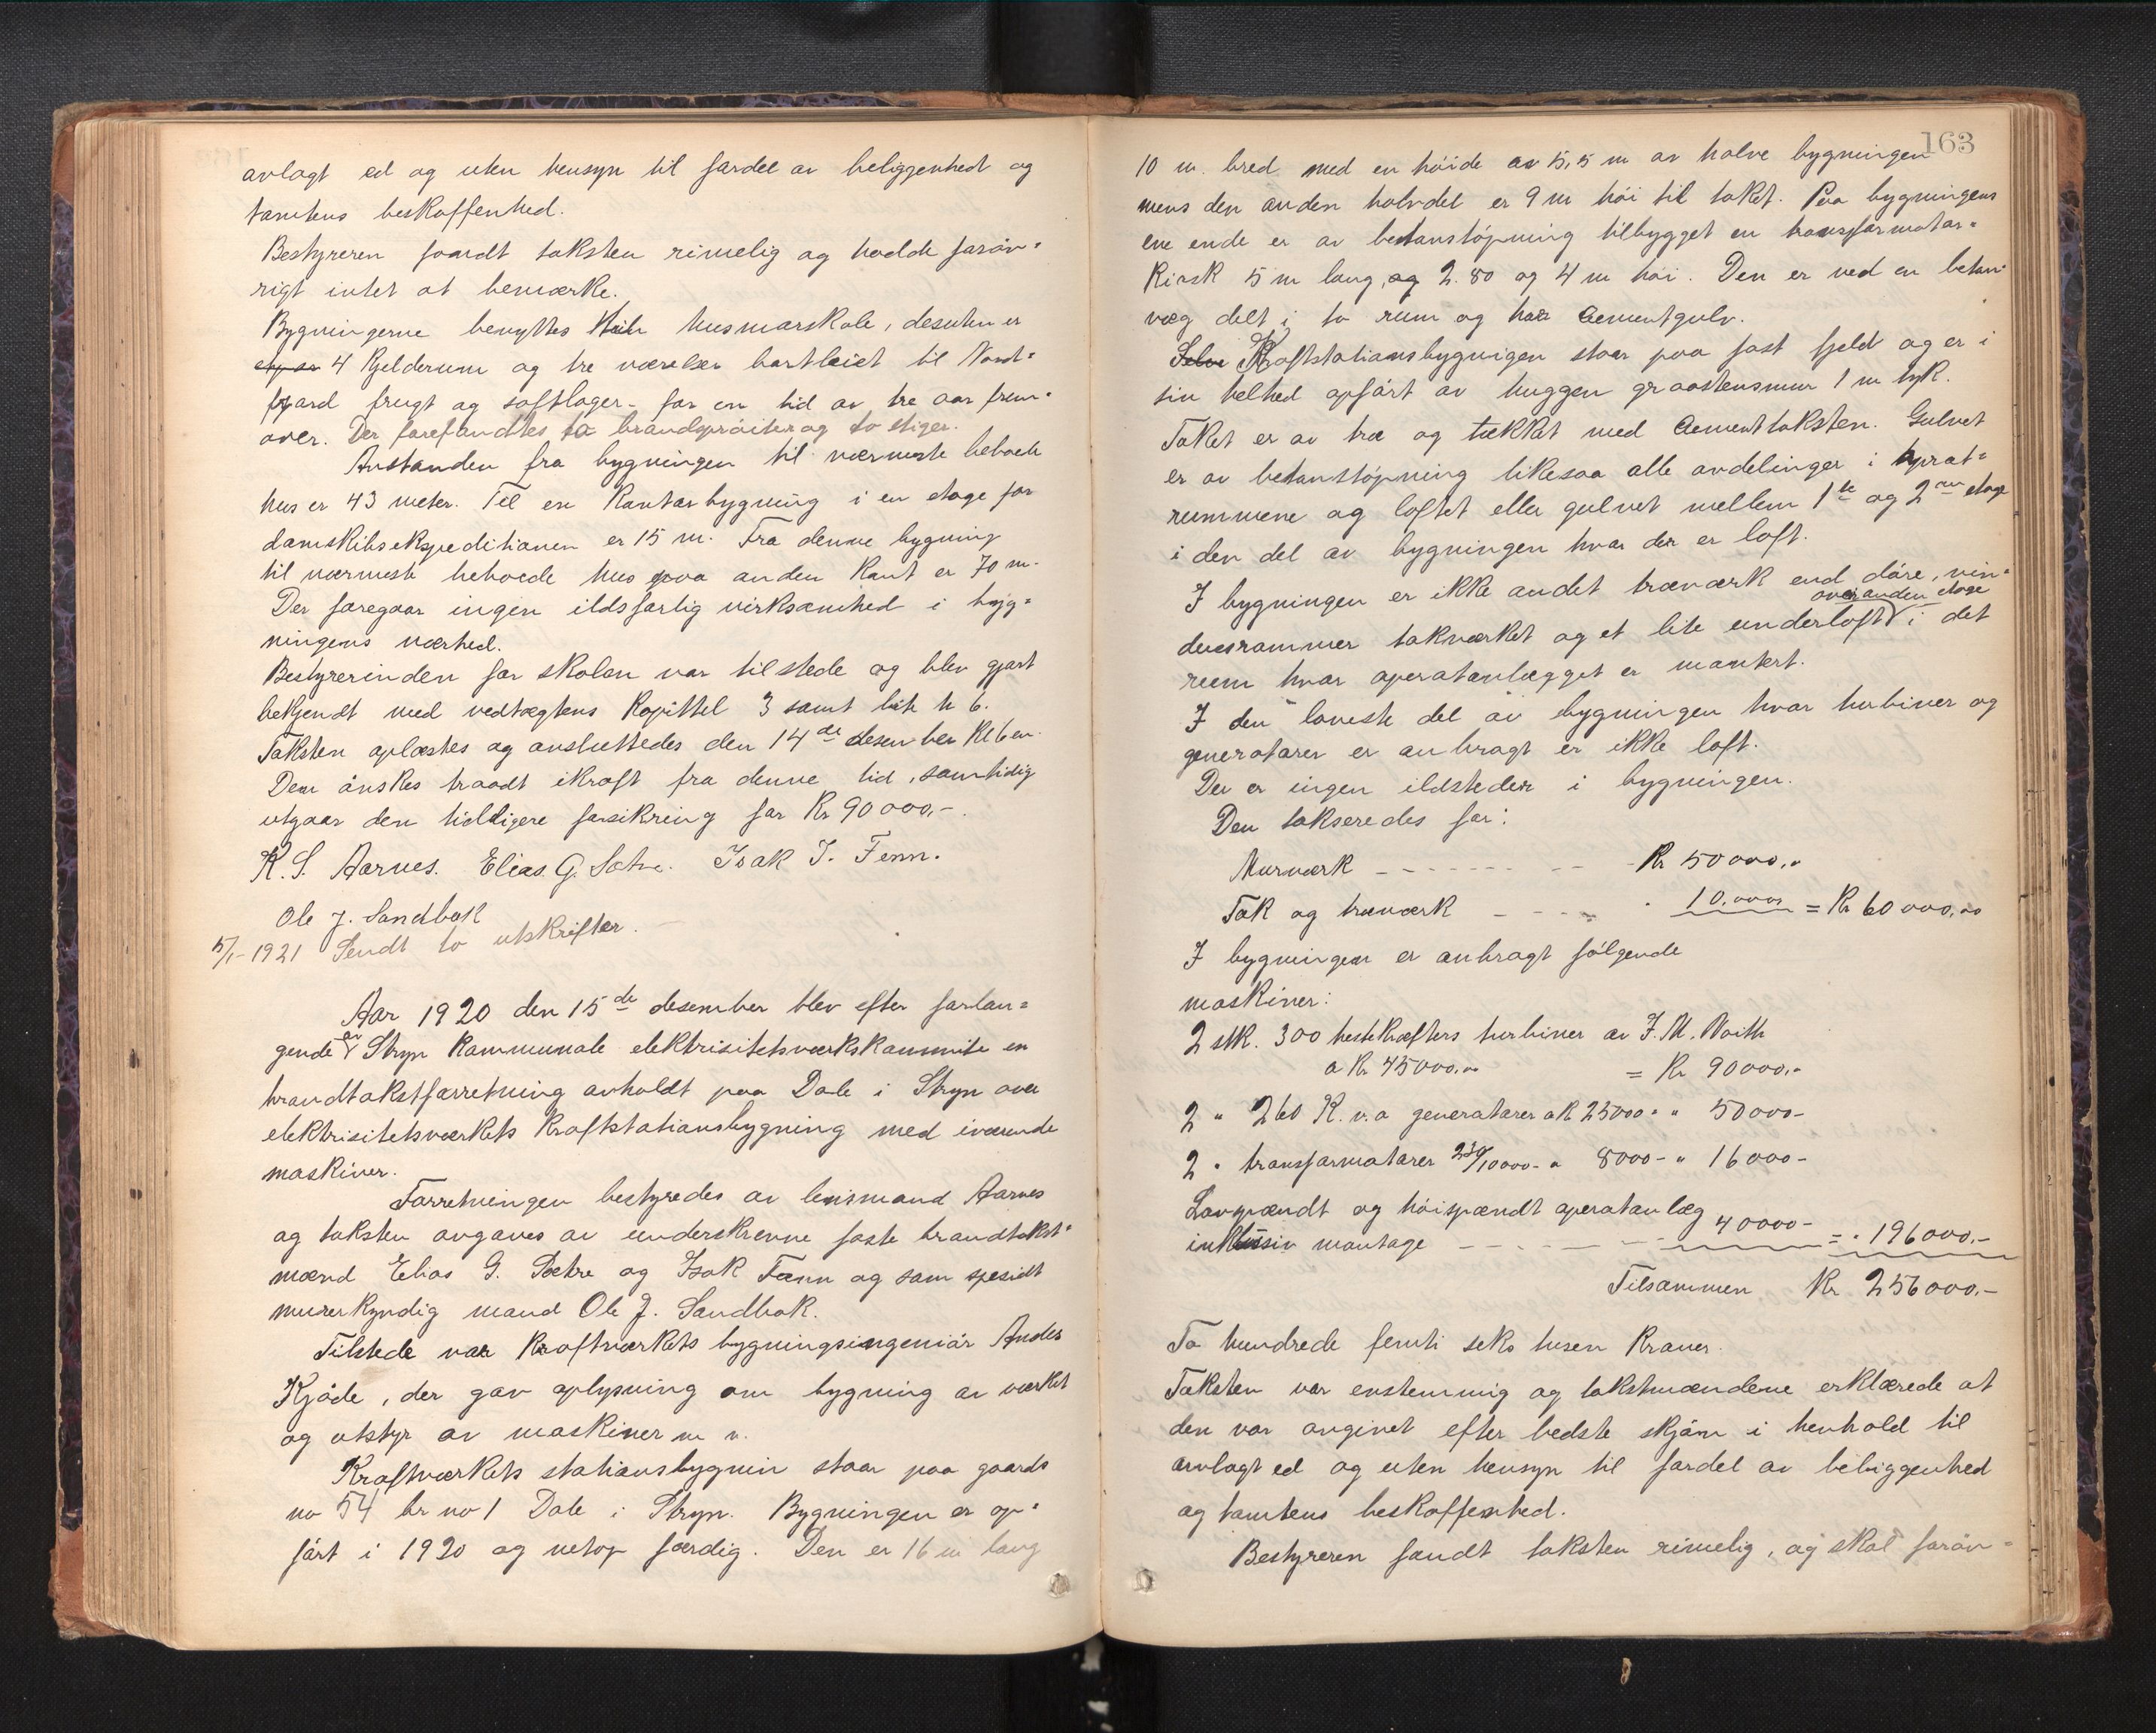 avlagt ed og uten hensyn til fordel av beliggenhet og
tomtens beskaffenhed.
Bestyreren fandt taksten rimelig og hadde forøv=
rigt intet at bemærke.
Bygningerne benyttes til husmorskole, desuten er
4 kjelderum og tre værelser bortleiet til Nord=
fjord frugt og saftlager - for en tid av tre aar frem=
over. Der forefandtes to brandsprøiter og to stiger.
Avstanden fra bygningen til nærmeste beboede
hus er 43 meter. Til en kontorbygning i en etage for
damskibsekspeditionen er 15 m. Fra denne bygning
til nærmeste beboede hus paa anden kant er 70 m.
Der foregaar ingen ildsfarlig virksomhed i byg=
ningens nærhed.
Bestyrerinden for skolen var tilstede og blev gjort
bekjendt med vedtægtens kapittel 3 samt lit h 6.
Taksten oplæstes og avsluttedes den 14de desember kl 6 em.
Den ønskes traadt ikraft fra denne tid, samtidig
utgaar den tidligere forsikring for Kr 90000,-
K. S. Aarnes. Elias G. Sætre. Isak J. Fenn.
Ole J. Sandbak
5/1-1921 Sendt to utskrifter.
Aar 1920 den 15de desember blev efter forlan=
gende av Stryn kommunale elektrisitetsværkskommite en
brandtakstforretning avholdt paa Dale i Stryn over
elektrisitetsværkets kraftstationsbygning med iværende
maskiner.
Forretningen bestyredes av lensmand Aarnes
og taksten avgaves av underskrevne faste brandtakst=
mænd Elias G. Sætre og Isak Fænn og som spesielt
murerkyndig mand Ole J. Sandbak.
Tilstede var kraftværkets bygningsingeniør Anders
Kjøde, der gav oplysning om bygning av værket
og utstyr av maskiner m v.
Kraftværkets stationsbygnin staar paa gaards
no 54 br no 1 Dale i Stryn. Bygningen er op=
ført i 1920 og netop færdig. Den er 16 m lang
163
10 m. bred med en høide av 5,5 m av halve bygningen
mens den anden halvdel er 9 m høi til taket. Paa bygningens
ene ende er av betonstøpning tilbygget en transformator=
kiosk 5 m lang, og 2.80 og 4 m høi. Den er ved en beton=
væg delt i to rum og har Cementgulv.
Selve Kraftstationsbygnigen staar paa fast fjeld og er i
sin helhed opført av huggen graastensmur 1 m tyk.
Taket er av træ og tækket med Cementtaksten. Gulvet
er av betonstøpning likesaa alle avdelinger i aprat=
rummene og loftet eller gulvet mellem 1ste og 2den etage
i den del av bygningen hvor der er loft.
I bygningen er ikke andet træværk end døre, vin=
duesrammer takværket og et lite underloft over anden etage i det
rum hvor aperatanlægget er montert.
I den laveste del av bygningen hvor turbiner og
generatorer er anbragt er ikke loft.
Der er ingen ildsteder i bygningen.
Den takseredes for:
Murværk - - - - - - Kr 50000,-
Tak og træværk - - - - " 10,000 = Kr 60000,00
I bygningen er anbragt følgende
maskiner:
2 stk. 300 hestekræfters turbiner av J. M. Voith
a Kr 45000,00 = Kr 90000,-
2 " 260 K.v.a generatorer a K 25000 - " 50000-
2 " transformatorer 230/10000- a 8000- " 16000-
Lavspændt og høispændt aperatanlæg
inklusiv montage - - - - - 40000- = " 196000,-
Tilsammen Kr 256000,-
To hundrede femti seks tusen Kroner.
Taksten var enstemmig og takstmændene erklærede at
den var avgivet efter bedste skjøn i henhold til
avlagt ed og uten hensyn til fordel av beliggenhed
og tomtens beskaffenhed.
Bestyreren fandt taksten rimelig, og skal forøv=